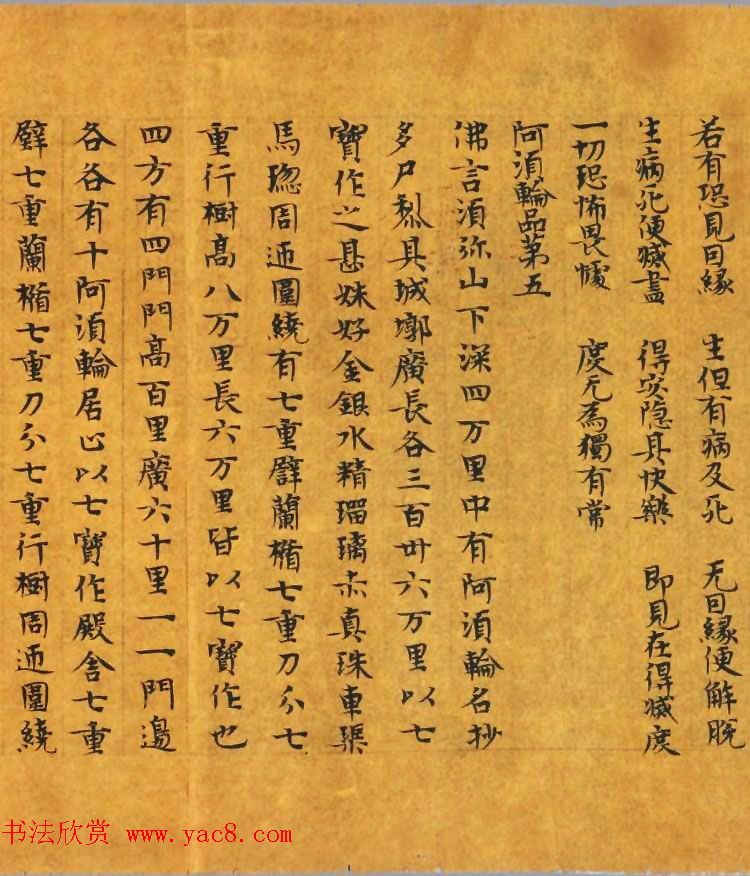 若有恐見因緣 生但有病及死 无因緣便解脫
生病死便滅盡 得安隐具快樂 即見在得滅度
一切恐怖畏懅 度无為獨有常
阿湏輪品第五
佛言湏弥山下深四万里中有阿湏輪名抄
多尸利其城墎廣長各三百卅六万里以七
寶作之甚姝好金銀水精瑠璃赤真珠車璖
馬瑙周迊圍繞有七重壁蘭楯七重刀分七
重行樹高八万里長六万里皆以七寶作也
四方有四門門高百里廣六十里一一門邊
各各有十阿湏輪居止以七寶作殿舍七重
壁七重蘭楯七重刀分七重行樹周迊圍繞
书法欣赏 www.yac8.com